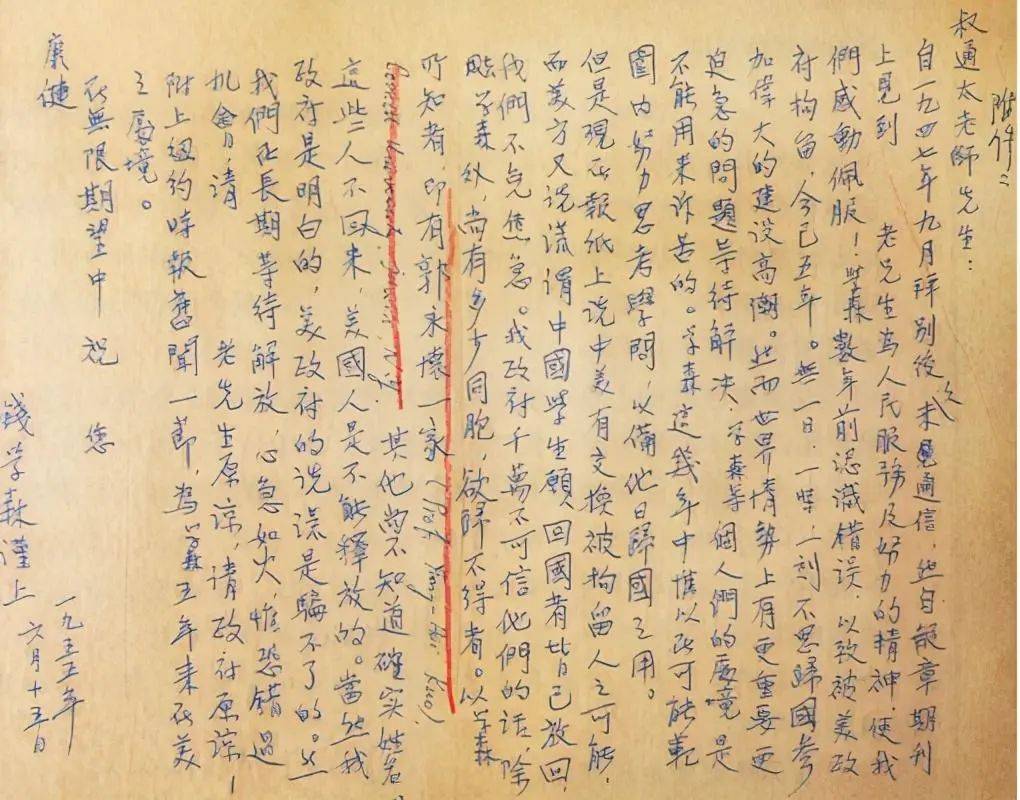 附件二
叔通太老師先生：
自一九四七年九月拜別後久未通信，然自報章期刊
上見到　老先生為人民服務及努力的精神，使我
們感動佩服！學森數年前認識錯誤，以致被美政
府拘留，今已五年。無一日、一時、一刻不思歸國參
加偉大的建設高潮。然而世界情勢上有更重要更
迫急的問題等待解決，學森等個人們的處境是
不能用來訴苦的。學森這幾年中惟以在可能範
圍內努力思考學問，以備他日歸國之用。
但是現在報紙上說中美有交換被拘留人之可能，
而美方又說謊謂中國學生願回國者皆已放回，
我們不免焦急。我政府千萬不可信他們的話，除
學森外，尚有多少同胞，欲歸不得者。以學森
所知者，即有郭永懷一家（Prof. Yung-Huai Kuo），
其他尚不知道確實姓名。
這些人不回來，美國人是不能釋放的。當然我
政府是明白的，美政府的說謊是騙不了的。然
我們在長期等待解放，心急如火，惟恐錯過
机會，請　老先生原諒，請政府原諒！
附上紐約時報舊聞一節，為學森五年來在美
之處境。
在無限期望中祝　您
康健
錢學森謹上
一九五五年
六月十五日